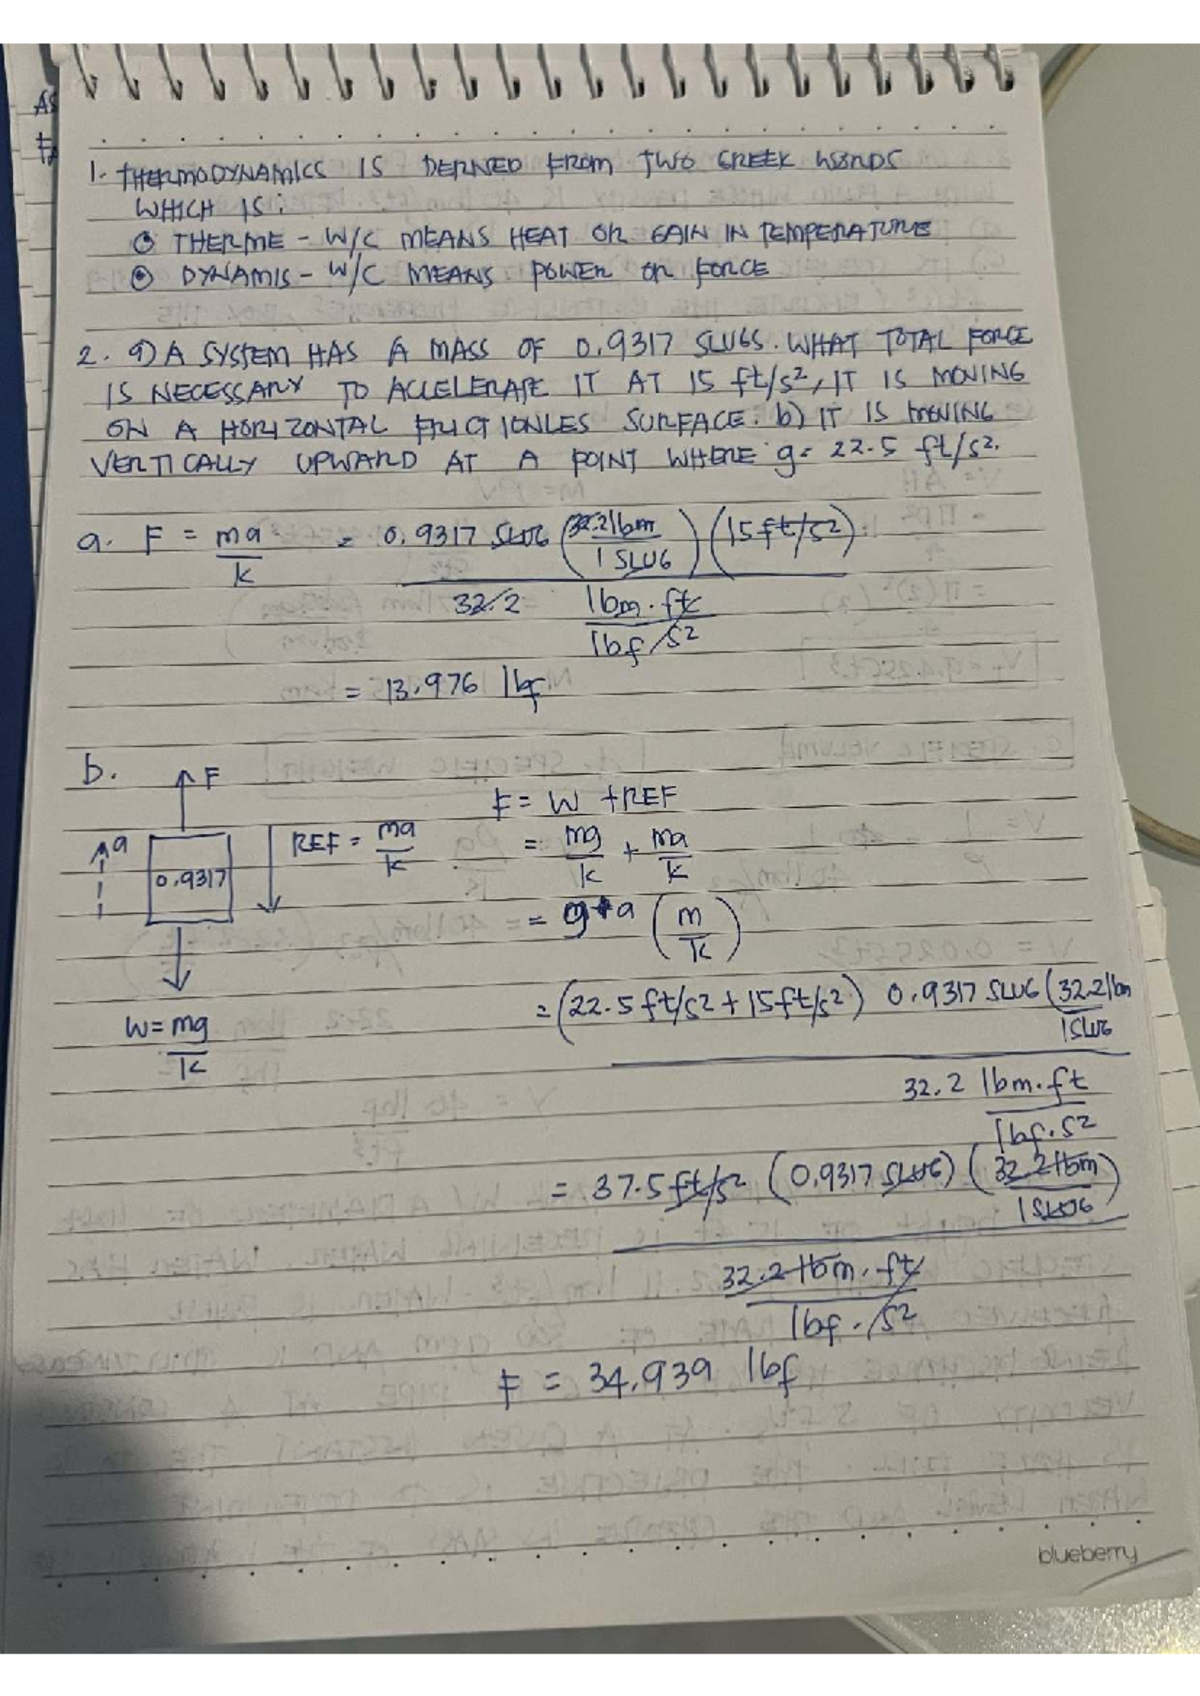 1. THERMODYNAMICS IS DERIVED FROM TWO GREEK WORDS
WHICH IS:
THERME - W/C MEANS HEAT OR GAIN IN TEMPERATURE
DYNAMIS - W/C MEANS POWER OR FORCE
2. a) A SYSTEM HAS A MASS OF 0.9317 SLUGS. WHAT TOTAL FORCE
IS NECESSARY TO ACCLELERATE IT AT 15 ft/s², IT IS MOVING
ON A HORIZONTAL FRICTIONLES SURFACE. b) IT IS MOVING
VERTICALLY UPWARD AT A POINT WHERE g= 22.5 ft/s².
a. F = ma/k = 0.9317 SLUG (32.2 lbm / 1 SLUG) (15 ft/s²)
32.2 lbm.ft / lbf/s²
= 13.976 lbf
b.
F
a
0.9317
REF = ma/k
W = mg/k
F = W + REF
= mg/k + ma/k
= g+a (m/k)
= (22.5 ft/s² + 15 ft/s²) 0.9317 SLUG (32.2 lbm / 1 SLUG
32.2 lbm.ft / lbf.s²
= 37.5 ft/s² (0.9317 SLUG) (32.2 lbm / 1 SLUG)
32.2 lbm.ft / lbf.s²
F = 34.939 lbf
blueberry